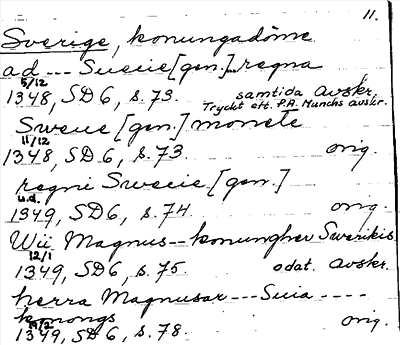 11.
Sverige, konungadöme
ad --- Sueue [gen.] -- regna
5/12
1348, SD 6, s. 73. samtida avskr.
Tryckt eft. P.A. Munchs avskr.
Sweue [gen.] monete
11/12
1348, SD 6, s. 73 orig.
regni Swecie [gen.]
u.d.
1349, SD 6, s. 74. orig.
Wii Magnus -- konungher Swerikis
12/1
1349, SD 6, s. 75. odat. avskr.
herra Magnusar --- Suia ----
konongs
1349, SD 6, s. 78. orig.